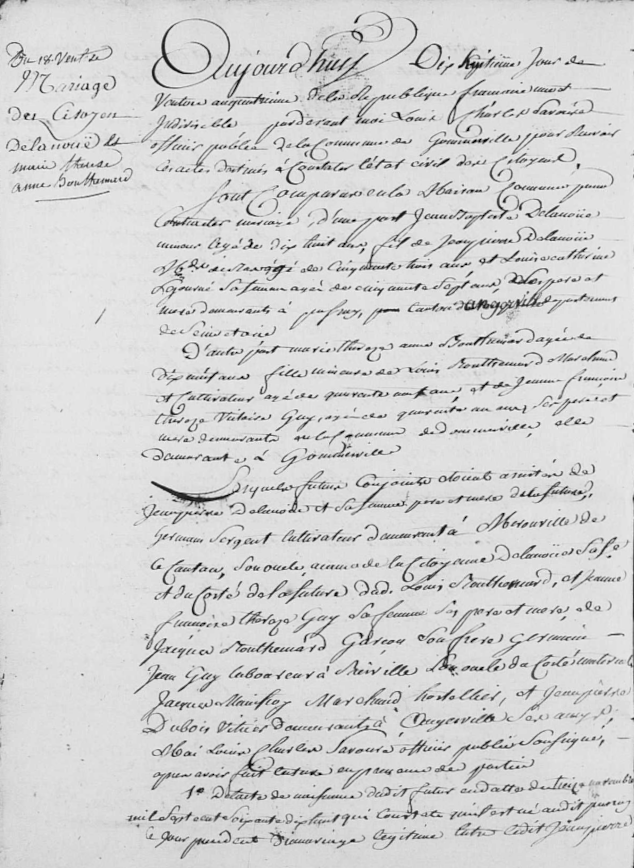 Du 18 Vent.se
Mariage
Des Citoyen
Delanoüe &
marie therese
anne Bouthemard
Aujourd'huy Dix huitieme Jour de
Ventose an quatrieme de la Republique francaise une et
Indivisible pardevant moi Louis Charles Savouré
officier public de la Commune de Gommerville pour Recevoir
les actes destinés à Constater l'état civil des Citoyens,
Sont Comparus en la Maison Commune pour
Contracter mariage, d'une part Jean Delanoüe
mineur agé de dix huit ans, fils de Jean pierre Delanoüe
M.d agé de Cinquante trois ans et Louise catherine
sa femme agée de cinquante Sept ans Ses pere et
mere demeurants à pussay, Canton d'angerville departement
de Seine et oise
D'autre part marie thereze anne Bouthemard agée de
dix huit ans fille mineure de Louis Bouthemard Marchand
et Cultivateur agé de quarante ans et de Jeanne francoise
thereze Guy, agée de quarante un ans, Ses pere et
mere demeurants en la Commune de Gommerville, elle
demeurante à Gommerville
Lesquels futurs Conjoints etoient assistés de
Jean pierre Delanoüe et Sa femme pere et mere de la future,
Germain Sergent Cultivateur demeurant à Merouville de
ce Canton, Son oncle, a cause de la Citoyenne Delanoüe Sa f.e
et du Coté de la future dud. Louis Bouthemard, et Jeanne
francoise thereze Guy Sa femme Ses pere et mere, de
Jacques Bouthemard Garçon Son frere Germain
Jean Guy laboureur à Son oncle du Coté maternel
Jacques Marchand hostellier, et Jean pierre
Dubois demeurants à Angerville Ses amys,
Moi Louis Charles Savouré officier public Soussigné,
apres avoir fait lecture en presence des parties
1.o De l'acte de naissance dudit futur en datte du treize novembre
mil Sept cent Soixante dix huit qui Constate qu'il est né audit pussay
ce Jour precedent Du mariage legitime entre ledit Jean pierre